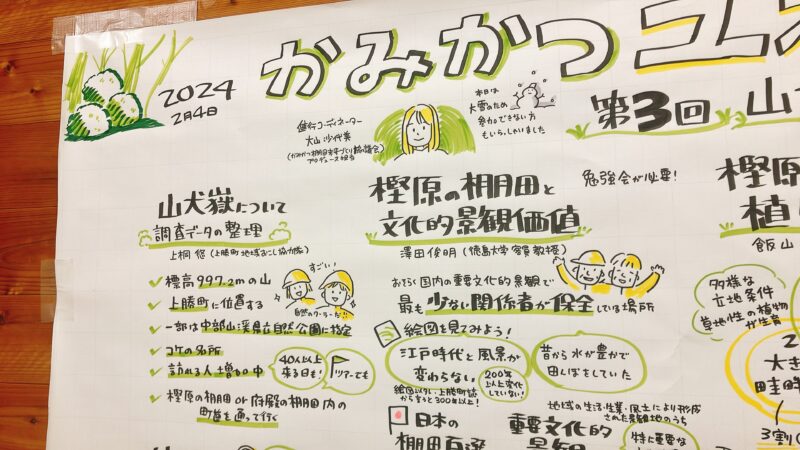 2024
2月4日
かみかつユネ
進行コーディネーター
大山 沙代美
本日は
大雪のため
参加できない方
もいらっしゃいました
第3回 山
山犬嶽について
調査データの整理
上桐 悠 (上勝町地域おこし協力隊)
標高997.2mの山
上勝町に位置する
一部は中部山渓県立自然公園に指定
コケの名所
訪れる人増加中
40人以上
来る日も!
ツアーでも
樫原の棚田or府殿の棚田内の
町道を通って行く
すごい!
樫原の棚田と
文化的景観価値
勉強会が必要!
澤田俊明 (徳島大学 客員教授)
おそらく国内の重要文化的景観で
最も少ない関係者が保全している場所
絵図を見てみよう!
江戸時代と風景が
変わらない
200年
以上変化
していない!
絵図以外・上勝町誌
から言うと300年以上!
昔から水が豊かで
田んぼをしていた
日本の
棚田百選
地域の生活・生業・風土により形成
された景観地のうち
重要文化的
景観
特に重要な
樫原
植
飯山
多様な
立地条件
草地性の植物
が生育
2
大き
畦畔
3割